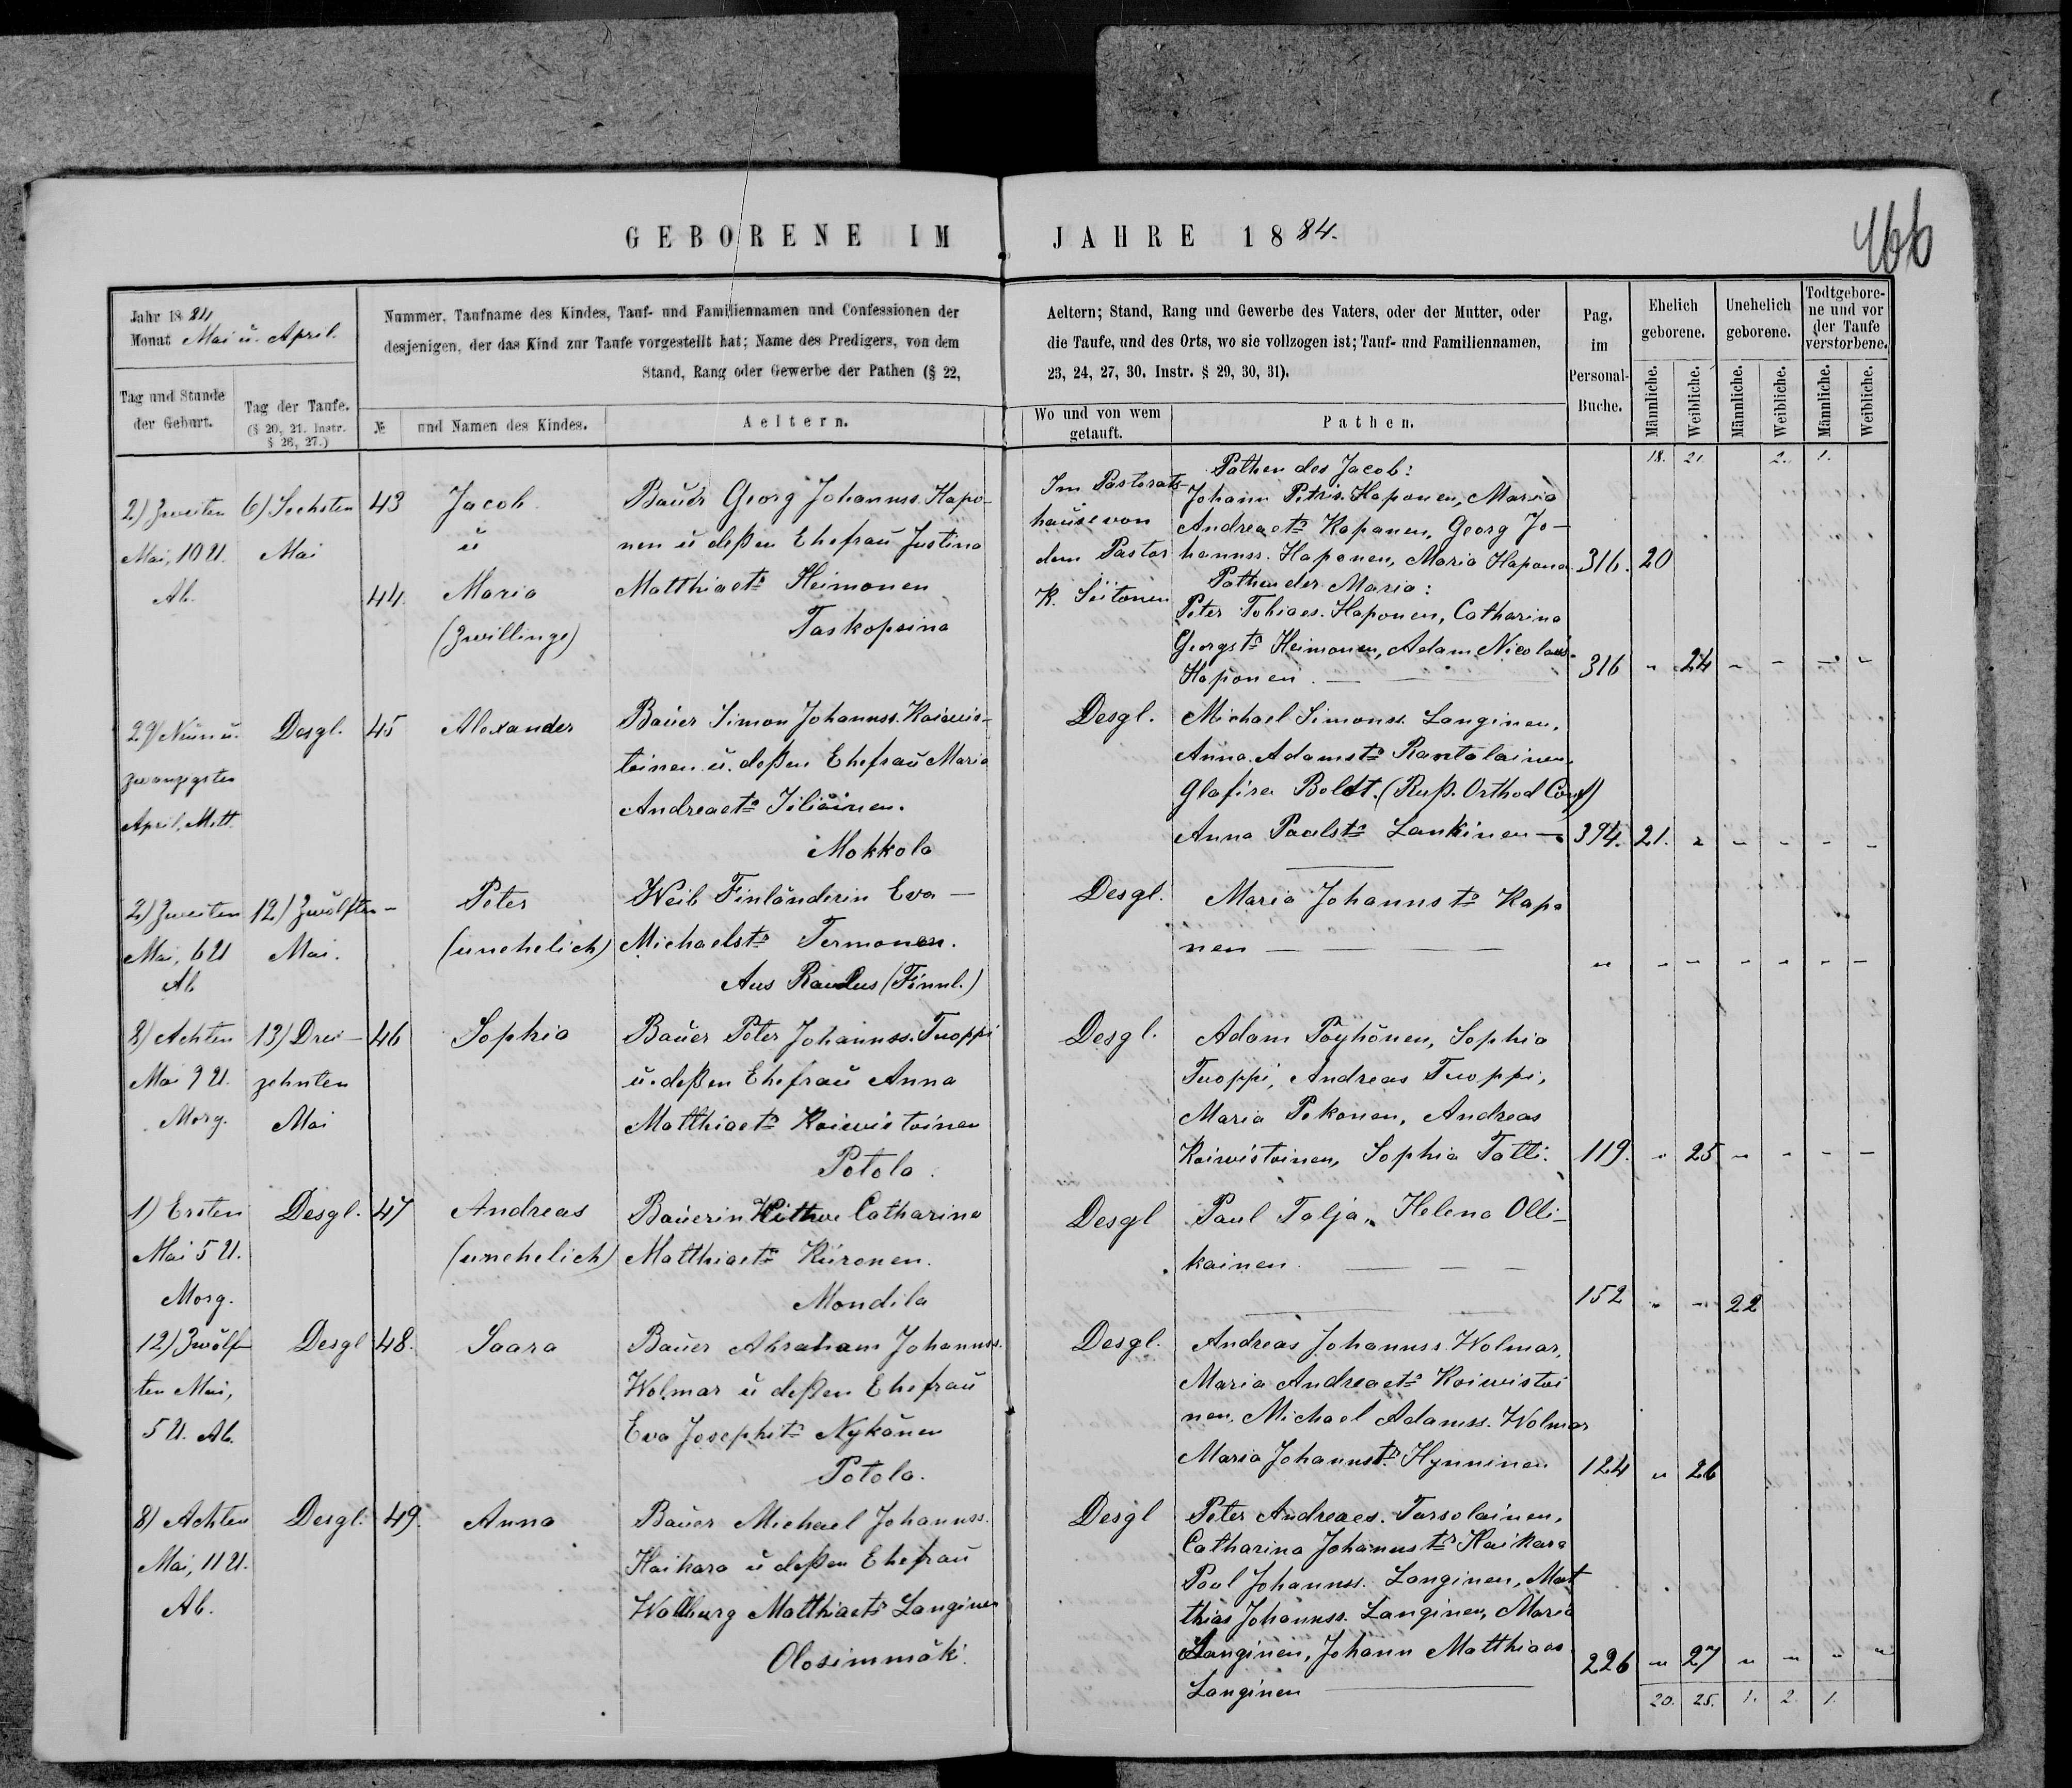 GEBORENE IM JAHRE 1884.
466
Jahr 1884
Monat Mai u. April.
Nummer, Taufname des Kindes, Tauf- und Familiennamen und Confessionen der
desjenigen, der das Kind zur Taufe vorgestellt hat; Name des Predigers, von dem
Stand, Rang oder Gewerbe der Pathen (§ 22,
Aeltern; Stand, Rang und Gewerbe des Vaters, oder der Mutter, oder
die Taufe, und des Orts, wo sie vollzogen ist; Tauf- und Familiennamen,
23, 24, 27, 30. Instr. § 29, 30, 31).
Pag. im Personal-Buche.
Ehelich geborene.
Unehelich geborene.
Todtgeborene und vor der Taufe verstorbene.
Tag und Stunde der Geburt.
Tag der Taufe. (§ 20, 21. Instr. § 26, 27.)
№ und Namen des Kindes.
Aeltern.
Wo und von wem getauft.
Pathen.
Männliche. Weibliche. Männliche. Weibliche. Männliche. Weibliche.
18. 21. 2. 1.
2) Zweiten
Mai, 10 U.
Ab.
6) Sechsten
Mai
43 Jacob
u
44. Maria
(Zwillinge)
Bauer Georg Johannss. Hapo-
nen u deßen Ehefrau Justina
Matthiaetr Heimonen
Taskopsina
Im Pastorats-
hause von
dem Pastor
K. Siitonen
Pathen des Jacob:
Johann Petris. Haponen, Maria
Andreaetr Kapanen, Georg Jo-
hannss. Haponen, Maria Hapona
316. 20
Pathen der Maria:
Peter Tobiaes. Haponen, Catharina
Georgstr Heimonen, Adam Nicolaus.
Haponen. —
316 " 24 " " " "
29) Neun u.
zwanzigsten
April, Mitt.
Desgl. 45 Alexander
Bauer Simon Johannss. Koiwis-
toinen u. deßen Ehefrau Maria
Andreaetr
Mokkola
Desgl.
Michael Simonss. Langinen,
Anna Adamstr Rantalainen,
Glafira Boldt. (Ruß. Orthod Conf)
Anna Paulstr Lankinen —
394. 21. " " " " "
2) Zweiten
Mai, 6 U
Ab
12) Zwölften
Mai.
-
Peter
(unehelich)
Weib Finländerin Eva —
Michaelstr Termonen.
Aus Raudus (Finnl.)
Desgl.
Maria Johannstr Kapa
nen —
" " " " " " "
8) Achten
Mai 9 U.
Morg.
13) Drei-
zehnten
Mai
46 Sophia
Bauer Peter Johannss. Tuoppi
u. deßen Ehefrau Anna
Matthiaetr Koiwistoinen
Potola.
Desgl.
Adam Pöyhönen, Sophia
Tuoppi, Andreas Tuoppi,
Maria Pekonen, Andreas
Koiwistoinen, Sophia Tatti.
119. " 25 " " " "
1) Ersten
Mai 5 U.
Morg.
Desgl. 47 Andreas
(unehelich)
Bauerin Wittwe Catharina
Matthiaetr Kiironen.
Mondila
Desgl
Paul Talja, Helena Olli-
kainen.
152 " " 22
12) Zwölf-
ten Mai,
5 U. Ab.
Desgl 48. Saara
Bauer Abraham Johannss.
Wolmar u deßen Ehefrau
Eva Josephstr Nykänen
Potola.
Desgl.
Andreas Johannss. Wolmar,
Maria Andreaetr Koiwistoi
nen, Michael Adamss. Wolmar
Maria Johannstr Hynninen
124 " 26
8) Achten
Mai, 11 U.
Ab.
Desgl. 49. Anna
Bauer Michael Johannss.
Kaikara u deßen Ehefrau
Walburg Matthiaetr Langinen
Olosimmäki.
Desgl
Peter Andreaes. Tarsolainen,
Catharina Johannstr Kaikara
Paul Johannss. Langinen, Mat
thias Johannss. Langinen, Maria
Langinen, Johann Matthiaes
Langinen —
226 " 27 " " " "
20. 25. 1. 2. 1.